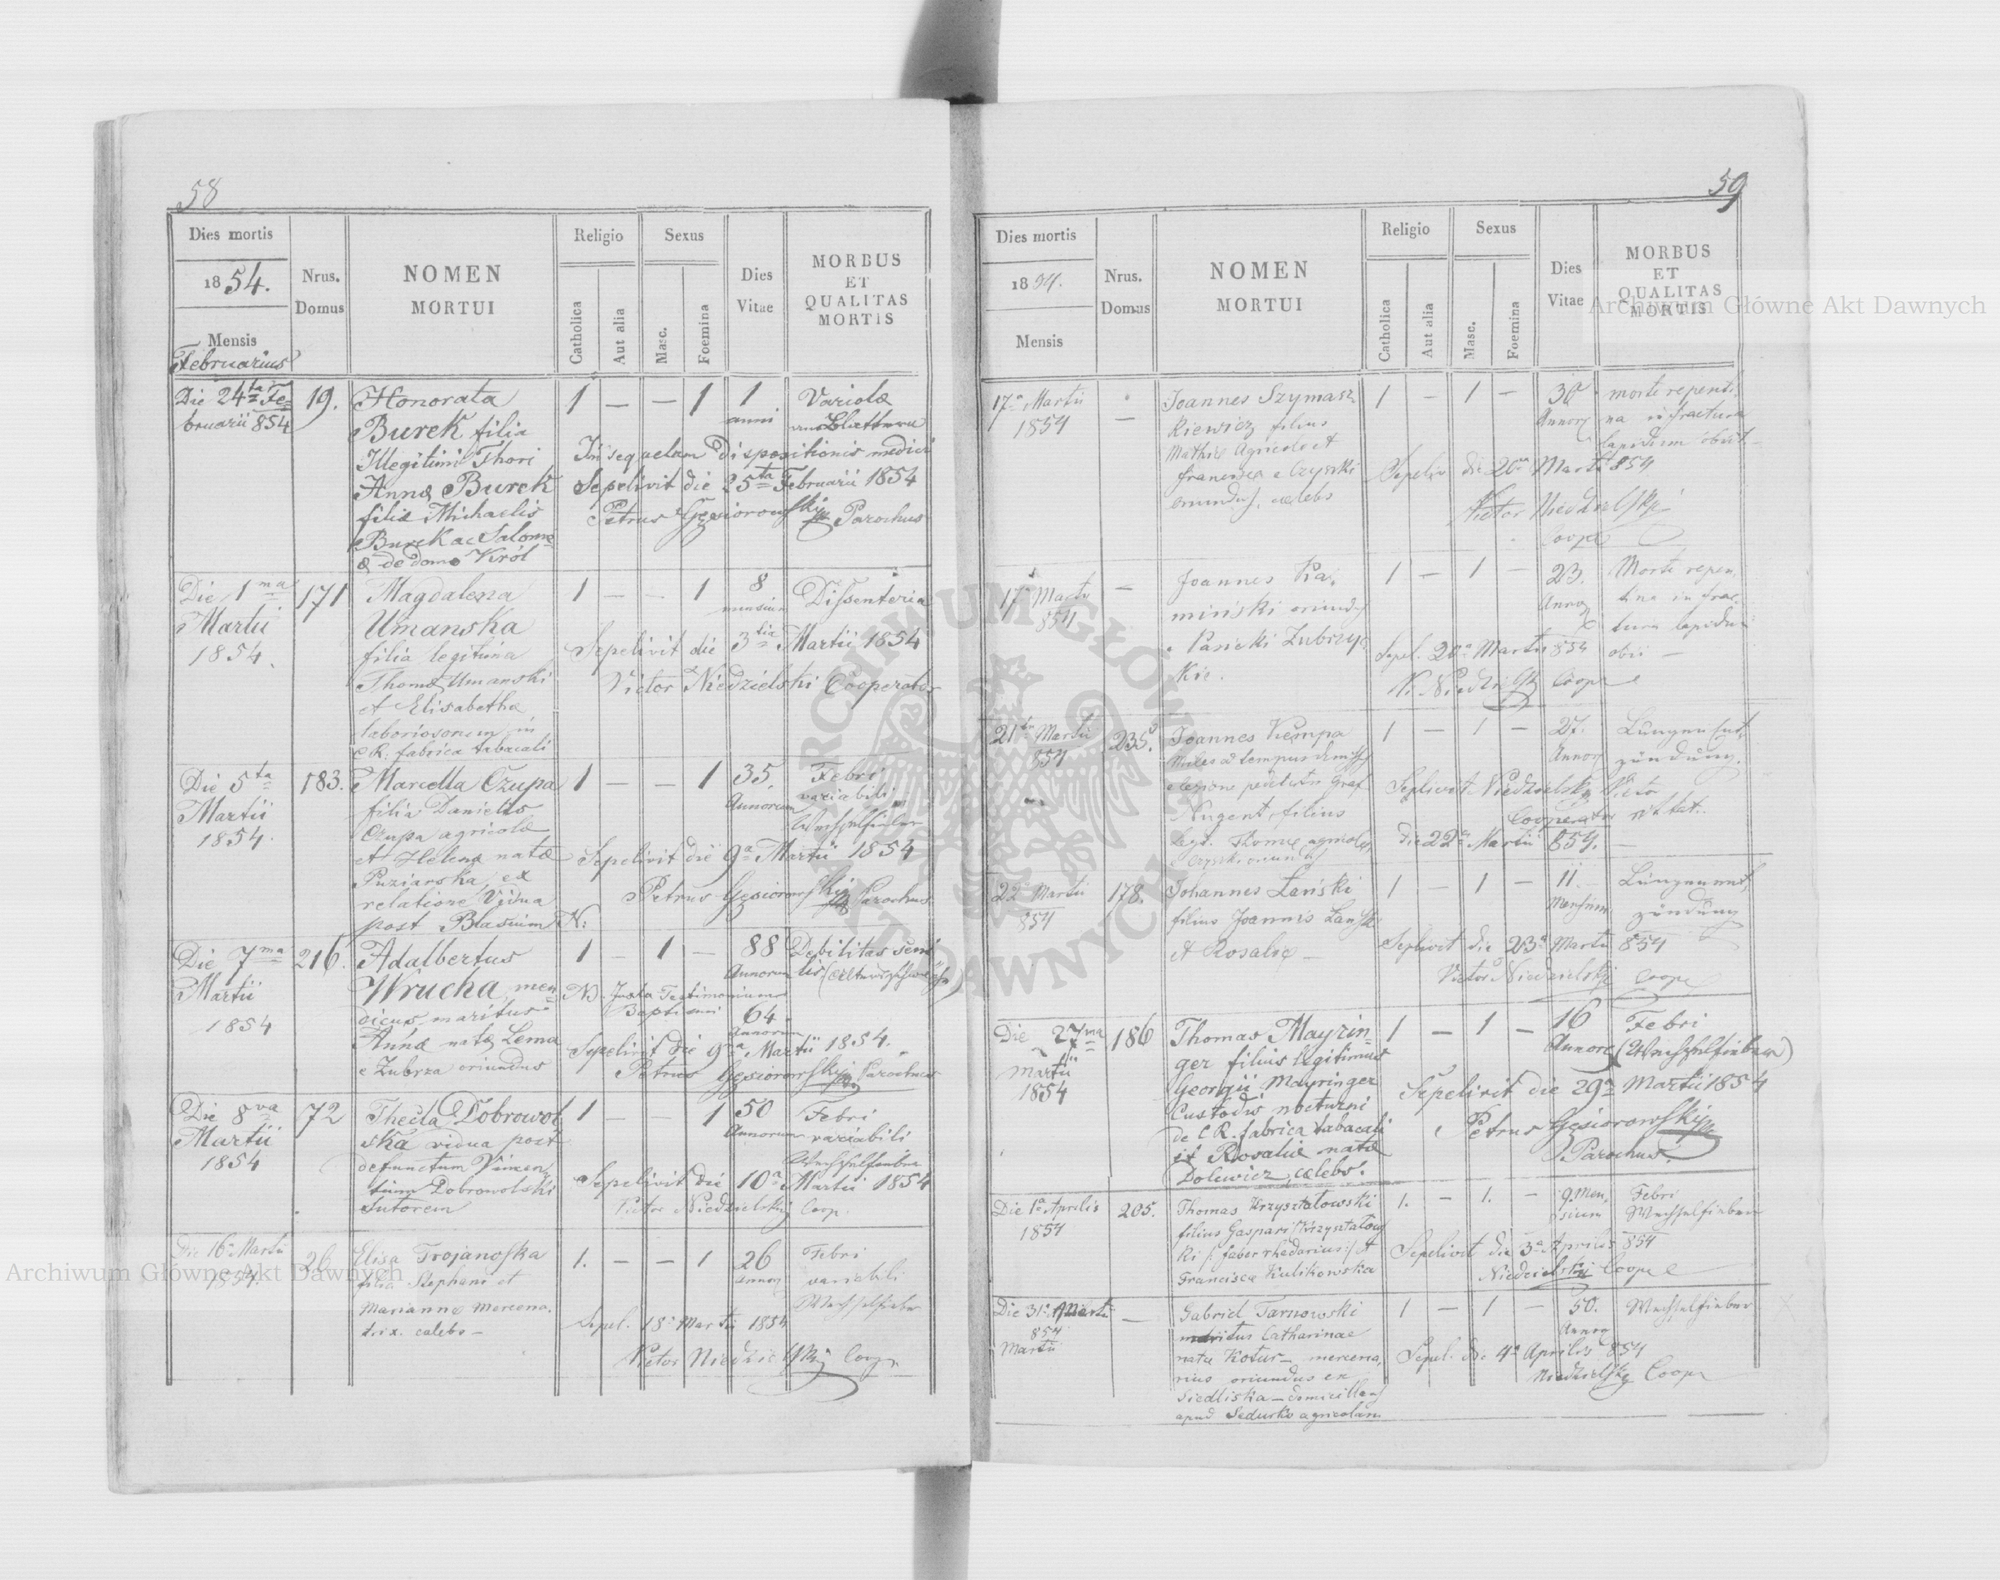 58
Dies mortis
1854.
Mensis
Februarius
Nrus.
Domus
NOMEN
MORTUI
Religio
Catholica
Aut alia
Sexus
Masc.
Foemina
Dies
Vitae
MORBUS
ET
QUALITAS
MORTIS
Die 24ta Fe=
bruarii 854
19.
Honorata
Burek filia
Illegitimi Thori
Annæ Burek
filiæ Michaelis
Burek ac Salome
æ de domo Król
1 — — 1
1
anni
Variolæ
In sequelam dispositionis medici
Sepelivit die 25ta Februarii 1854
Petrus Gęsiorowski Parochus
Die 1ma
Martii
1854.
171
Magdalena
Umanska
filia legitima
Thomæ Umanski
et Elisabetha
laboriosorum in
C.R. fabrica tabacali
1 — — 1
8
mensium
Dissenteria
Sepelivit die 3tia Martii 1854
Victor Niedzielski Cooperator
Die 5ta
Martii
1854.
183.
Marcella Czupa
filia Danielis
Czupa agricolæ
et Helena natæ
Puziarska, ex
relatione Vidua
post Blasium N:
1 — — 1
35,
Annorum
Febri
variabili
Wechselfieber
Sepelivit die 9a Martii 1854
Petrus Gęsiorowski Parochus
Die 7ma
Martii
1854
216.
Adalbertus
Wrucha, men=
dicus maritus
Annæ natæ Lema
e Zubrza oriundus
1 — 1 —
88
Annorum
Debilitas seni
lis
NB. Juxta Testimonium
Baptismi
64.
Annorum
Sepelivit die 9na Martii 1854.
Petrus Gęsiorowski Parochus
Die 8va
Martii
1854
72
Thecla Dobrowol
ska vidua post
defunctum Vincen
tium Dobrowolski
Sutorem
1 — — 1
50
Annorum
Febri
variabili
Wechselfieber
Sepelivit die 10a Martii 1854
Victor Niedzielski Coop.
Die 16a Martii
1854.
26
Elisa Trojanoska
filia Stephani et
Marianna mercena.
trix. celebs —
1. — — 1
26
Annor
Febri
variabili
Wechselfieber
Sepel. 18a Martii 1854
Victor Niedzielski Coop.
59
Dies mortis
1854.
Mensis
Nrus.
Domus
NOMEN
MORTUI
Religio
Catholica
Aut alia
Sexus
Masc.
Foemina
Dies
Vitae
MORBUS
ET
QUALITAS
MORTIS
17a Martii
1854
—
Joannes Szymasz
kiewicz filius
Mathiæ Agricolæ et
Franciscæ e Czyszki
oriundus, celebs
1 — 1 —
30
Annor
morte repenti
na in fractura
lapidum obiit —
Sepeliv die 20a Martii 854
Victor Niedzielski
Coope
17a Martii
854
—
Joannes Ka.
miński oriundus
e Pasieki Zubrzyc
kie.
1 — 1 —
23.
Annor
Morte repen
tina in frac.
tura lapidum
obii —
Sepel. 20a Martii 854
V. Niedzielski Coope
21ta Martii
854
235.
Joannes Kempa
Miles ad tempus dimiss
e legione peditum Graf
Nugent, filius
legi. Thomæ agricolæ,
e Czyszki oriundus
1 — 1 —
27.
Annor
Lungen Ent,
zündung.
Seplivit Niedzielski Victor
Cooperator
die 22a Martii 854. —
22 Martii
854
178.
Johannes Lański
filius Joannis Lański
et Rosaliæ —
1 — 1 —
11. —
Mensium
Lungenent,
zündung
Seplivit die 23a Martii 854
Victor Niedzielski Coope
Die 27ma
Martii
1854
186
Thomas Mayrin=
ger filius legitimus
Georgii Mayringer
Custodis nocturni
de C R. fabrica tabacali
et Rosaliæ natæ
Dolewicz, celebs.
1 — 1 —
16
Annor
Febri
(Wechselfieber)
Sepelivit die 29a Martii 1854
Petrus Gęsiorowski
Parochus.
Die 1a Aprilis
1854
205.
Thomas Krzysztalowski
filius Gaspari Krzysztalow
ki /: faber rhedarius:/ et
Francisca Kulikowska
1. — 1. —
9. Men,
sium
Febri
Wechselfieber
Sepelivit die 3a Aprilis 854
Niedzielski Coope
Die 31a Martii
854
Martii
—
Gabriel Tarnowski
maritus Catharinae
natæ Kotus — mercena,
rius oriundus ex
Siedliska — domicilians
apud Sedurko agricolam
1 — 1 —
50.
Annor
Wechselfieber
Sepel. die 4a Aprilis 854
Niedzielski Coope
Archiwum Główne Akt Dawnych
Archiwum Główne Akt Dawnych
ARCHIWUM GŁÓWNE AKT DAWNYCH